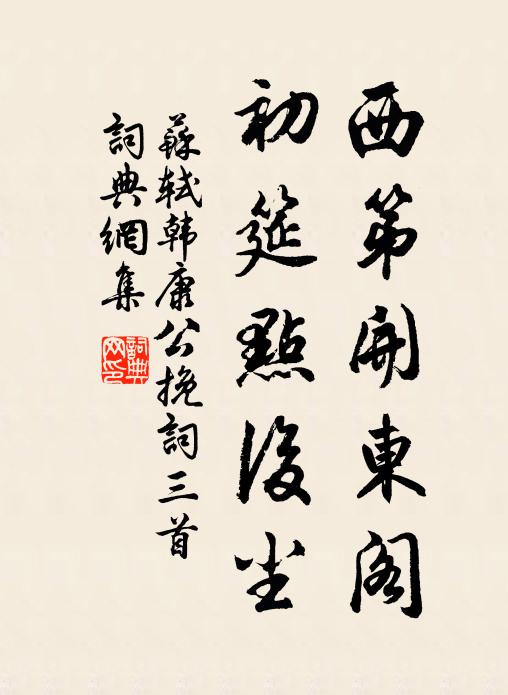 西第開東閣
初筵點後塵
蘇軾韩康公挽詞三首
詞典網集
詞典
网印